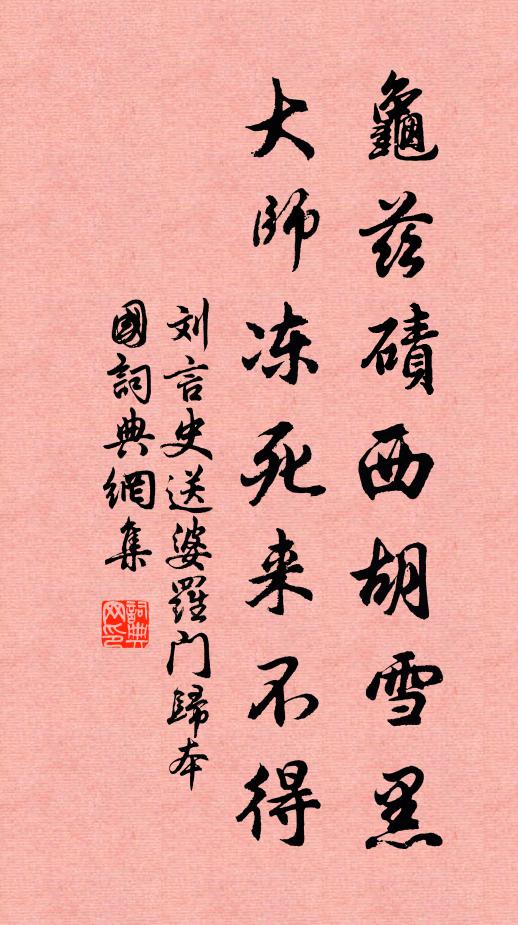 龜茲磧西胡雪黑
大師冻死来不得
刘言史送婆羅门歸本
國詞典網集
詞典网印